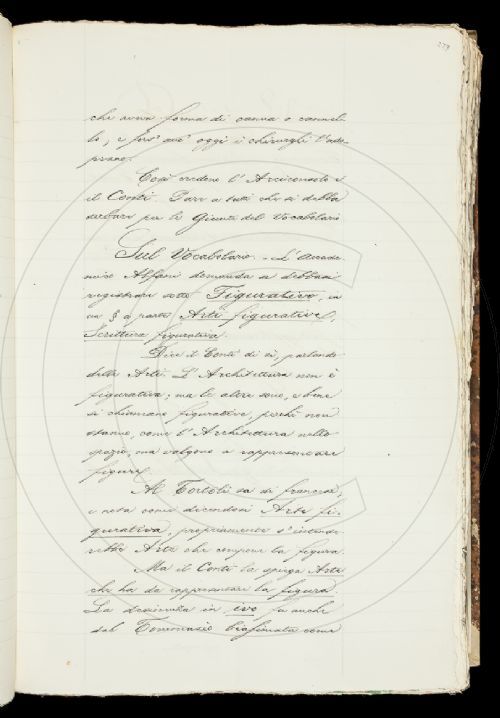 279
che aveva forma di canna o cannel-
lo, e fors' anc' oggi i chirurghi l'ado-
prano.
Così credono l'Arciconsolo e
il Conti. Pare a tutti che si debba
serbare per la Giunta del Vocabolario
Sul Vocabolario. - L'Accade-
mico Alfani domanda se debbasi
registrare sotto Figurativo, in
un § a parte Arti figurative,
Scrittura figurativa.
Dice il Conti di sì, parlando
delle Arti. L'Architettura non è
figurativa; ma le altre sono, e bene
si chiamano figurative, perchè non
stanno, come l'Architettura nello
spazio, ma valgono a rappresentare
figure.
Al Tortoli sa di francese,
e nota come dicendosi Arte fi-
gurativa, propriamente s'intende-
rebbe Arte che compone la figura.
Ma il Conti la spiega Arte
che ha da rappresentare la figura.
La desinenza in ivo fu anche
dal Tommaseo biasimata come